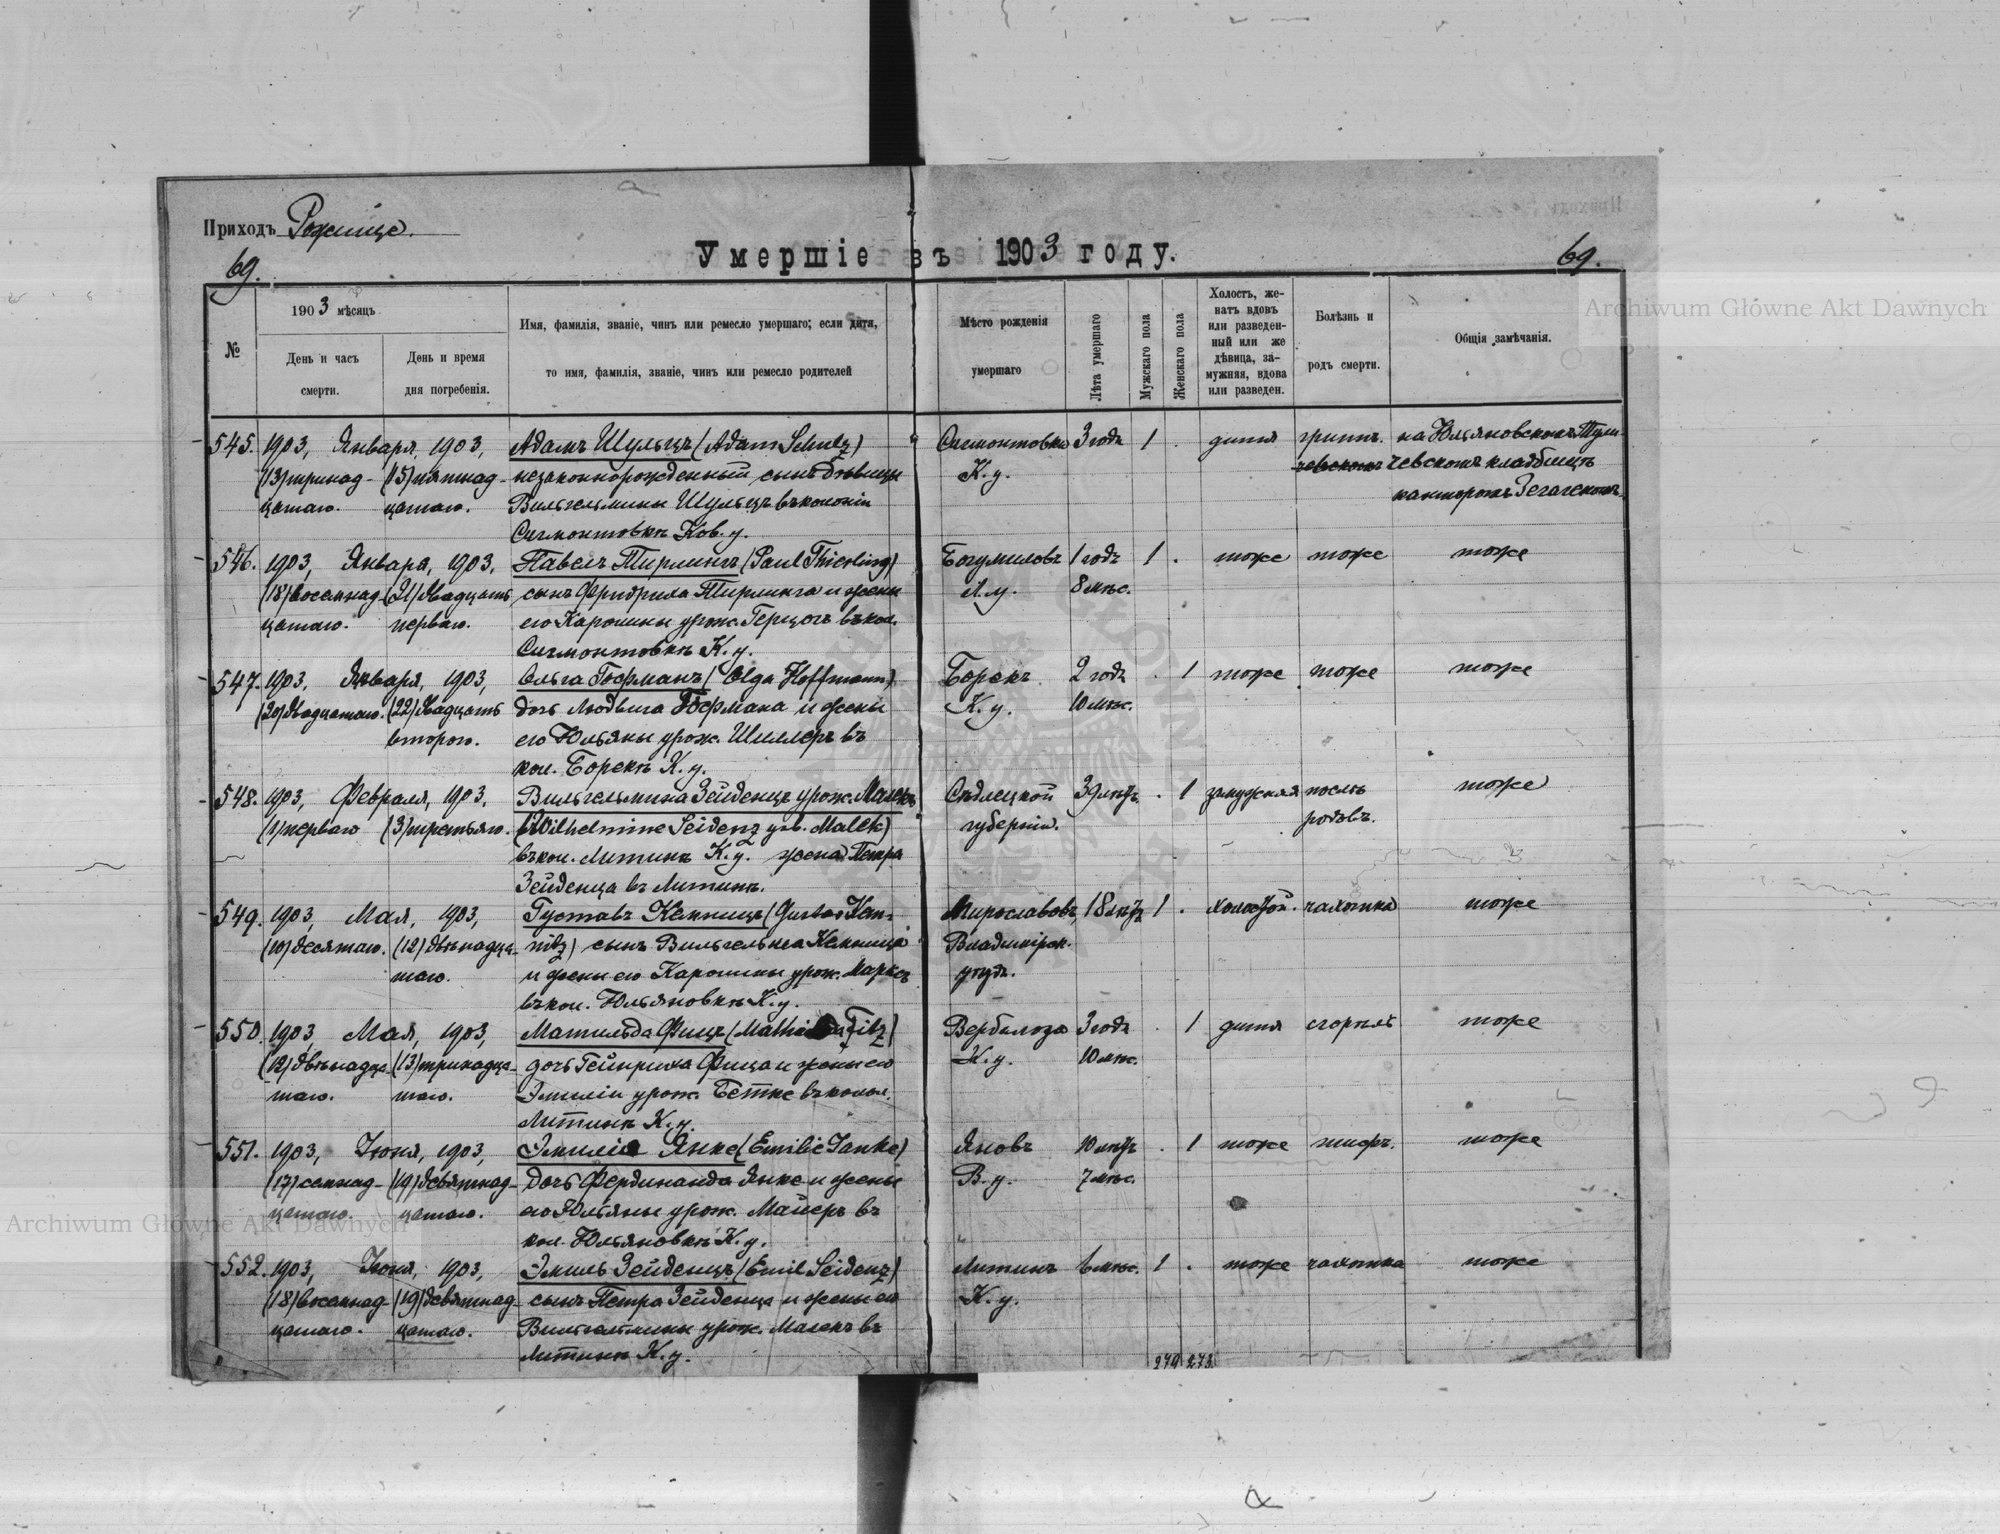 Приходъ Рожище.
69.
Умершіе въ 1903 году.
69.
Archiwum Główne Akt Dawnych
№
1903 мѣсяцъ
День и часъ
смерти.
День и время
дня погребенія.
Имя, фамилія, званіе, чинъ или ремесло умершаго; если дитя,
то имя, фамилія, званіе, чинъ или ремесло родителей
Мѣсто рожденія
умершаго
Лѣта умершаго
Мужскаго пола
Женскаго пола
Холостъ, же-
натъ вдовъ
или разведен-
ный или же
дѣвица, за-
мужняя, вдова
или разведен.
Болѣзнь и
родъ смерти.
Общія замѣчанія.
545. 1903, Января, 1903, Адамъ Шульцъ (Adam Schulz) Сигмонтовка 3 года 1 . дитя гриппъ. на Юльяновскомъ Тули-
(13) тринад- (15) пятнад- незаконнорожденный сынъ дѣвицы К. у. чевскомъ кладбищѣ
цатаго. цатаго. Вильгельмины Шульцъ въ колоніи канторомъ
Сигмонтовкѣ Ков. у.
546. 1903, Января, 1903, Павелъ Тирлингъ (Paul Thierling) Богумиловъ 1 годъ 1 . тоже тоже тоже
(18) восемнад- (21) двадцать сынъ Фридриха Тирлинга и жены Л. у. 8 мѣс.
цатаго. перваго. его Каролины урож. Герцогъ въ кол.
Сигмонтовкѣ К. у.
547. 1903, Января, 1903, Ольга Гофманъ (Olga Hoffmann) Борекъ 2 года . 1 тоже тоже тоже
(20) двадцатаго. (22) двадцать дочь Людвига Гофмана и жены К. у. 10 мѣс.
второго. его Юльяны урож. Шиллеръ въ
кол. Борекъ К. у.
548. 1903, Февраля, 1903, Вильгельмина Зейденцъ урож. Малекъ Сѣдлецкой 39 лѣтъ . 1 замужняя послѣ тоже
(1) перваго (3) третьяго. (Wilhelmine Seidenz geb. Malek) губерніи. родовъ.
въ кол. Литинъ К. у. жена Петра
Зейденца въ Литинѣ.
549. 1903, Мая, 1903, Густавъ Кемницъ (Gustav Kem- Мирославовъ, 18 лѣтъ 1 . холостой. чахотка тоже
(10) десятаго. (12) двѣнадца- nitz) сынъ Вильгельма Кемница Владимірск.
таго. и жены его Каролины урож. Марксъ уѣзд.
въ кол. Юльяновкѣ К. у.
550. 1903, Мая, 1903, Матильда Фицъ Fitz) Вербалоза 3 года . 1 дитя сгорѣлъ тоже
(12) двѣнадца- (13) тринадца- дочь Гейнриха Фица и жены его К. у. 10 мѣс.
таго. таго. Эмиліи урож. Бетке въ колон.
Литинѣ К. у.
551. 1903, Іюня, 1903, Эмилія Янке (Emilie Janke) Яновъ 10 лѣтъ . 1 тоже тифъ. тоже
(17) семнад- (19) девятнад- дочь Фердинанда Янке и жены В. у. 7 мѣс.
цатаго. цатаго. его Юльяны урож. Майеръ въ
кол. Юльяновкѣ К. у.
Archiwum Główne Akt Dawnych
552. 1903, Іюня, 1903, Эмиль Зейденцъ (Emil Seidenz) Литинъ 6 мѣс. 1 . тоже чахотка тоже
(18) восемнад- (19) девятнад- сынъ Петра Зейденца и жены его К. у.
цатаго. цатаго. Вильгельмины урож. Малекъ въ
Литинѣ К. у.
273.